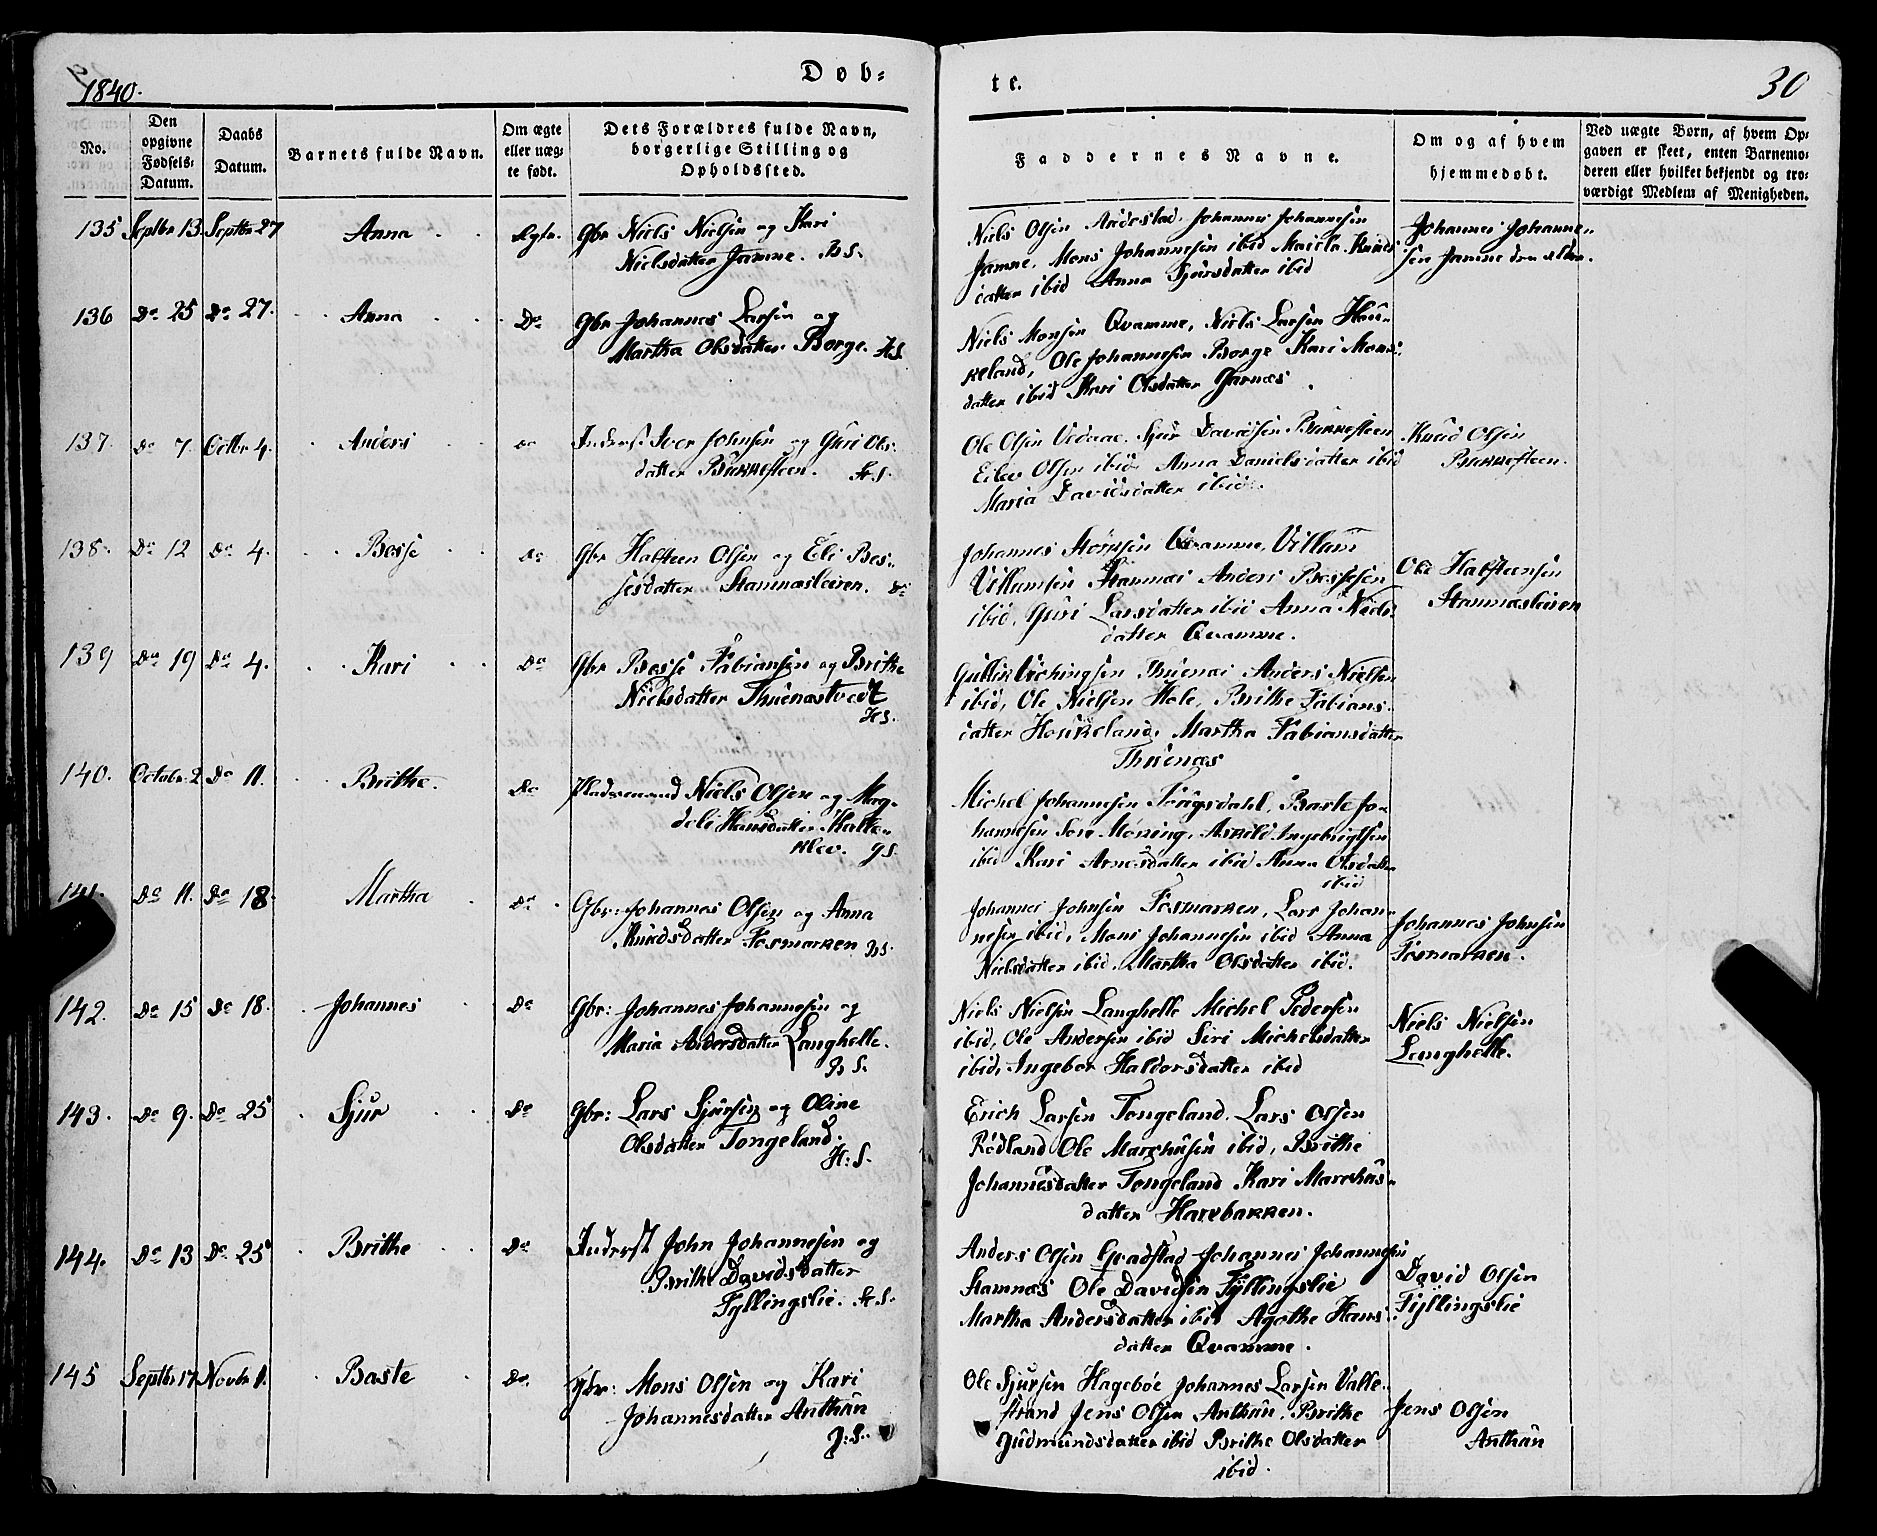 1840.
Døb-
te.
30
No.
Den
opgivne
Fødsels-
Datum.
Daabs
Datum.
Barnets fulde Navn.
Om ægte
eller uæg-
te født.
Dets Forældres fulde Navn,
borgerlige Stilling og
Opholdssted.
Faddernes Navne.
Om og af hvem
hjemmedøbt.
Ved uægte Børn, af hvem Op-
gaven er skeet, enten Barnemo-
deren eller hvilket bekjendt og tro-
værdigt Medlem af Menigheden.
135 Septbr 13. Septbr 27 Anna Ægte. Gbr Niels Nielsen og Kari
Nielsdatter Jamne.
Niels Olsen Andestad. Johannes Johannesen
Jamne, Mons Johannesen ibid Knuds
datter ibid Anna Sjursdatter ibid
Johannes Johanne-
sen Jamne den ældre.
136 Do 25 Do 27. Anna Do Gbr Johannes Larsen og
Martha Olsdatter Borge. H.S.
Niels Monsen Qvamme, Niels Larsen Hou-
keland, Ole Johannesen Borge Kari Mons-
datter ibid Kari Olsdatter Garnæs.
137. Do 7. Octbr 4. Anders Do Inderst Iver Johnsen og Guri Ols-
datter Bukkesteen. St.S.
Ole Olsen Vedaae. Sjur Davidsen Bukkesteen
Eilev Olsen ibid. Anna Danielsdatter ibid
Maria Davidsdatter ibid.
Knud Olsen
Bukkesteen.
138. Do 12 Do 4. Besse Do Gbr Halsteen Olsen og Eli Bes-
sesdatter Stamnæsleiren. Do
Johannes Qvamme, Villam
Villumsen Stamnæs Anders Bessesen
ibid. Guri Larsdatter ibid Anna Niels-
datter Qvamme.
Ole Halsteensen
Stamnæsleiren
139 Do 19 Do 4. Kari Do Gbr Besse Fabiansen og Brithe
Nielsdatter Thuenæstvedt
H.S.
Gullik Vichingsen Thuenæs Anders Nielsen
ibid, Ole Nielsen Hole, Brithe Fabians-
datter Houkeland, Martha Fabiansdatter
Thuenæs
140. Octobr. 2 Do 11. Brithe. Do Pladsemand Niels Olsen og Mag-
deli Hansdatter Kalte-
klev. G.S.
Michel Johannesen Baste Jo-
hannesen Askild Ingebrigtsen
ibid Kari Arnesdatter ibid Anna Olsdatter
ibid
141. Do 11. Do 18. Martha Do Gbr: Johannes Olsen og Anna
Knudsdatter Fosmarken B.S.
Johannes Johnsen Fosmarken, Lars Johan-
nesen ibid, Mons Johannesen ibid Anna
Nielsdatter ibid. Martha Olsdatter ibid.
Johannes Johnsen
Fosmarken.
142. Do 15 Do 18. Johannes Do Gbr: Johannes Johannesen og
Maria Andersdatter Langhelle.
B S.
Niels Nielsen Langhelle Michel Pedersen
ibid, Ole Andersen ibid Siri Michelsdatter
ibid, Ingebor Haldorsdatter ibid
Niels Nielsen
Langhelle.
143. Do 9. Do 25 Sjur Do Gbr: Lars Sjursen og Oline
Olsdatter Tongeland.
H:S.
Erich Larsen Tongeland. Lars Olsen
Rødland Ole Marchusen ibid, Brithe
Johannesdatter Tongeland Kari Marchus-
datter Harebakken.
144. Do 13 Do 25 Brithe Do Inderst John Johannesen og
Brithe Davidsdatter
Fyllingslie. St.S.
Anders Olsen Johannes Johannesen
Stamnæs Ole Davidsen Fyllingslie
Martha Andersdatter ibid Agathe Hans-
datter Qvamme.
David Olsen
Fyllingslie
145 Septbr 17 Novbr 1. Baste Do. Gbr: Mons Olsen og Kari
Johannesdatter Anthun
B:S.
Ole Sjursen Hagebøe Johannes Larsen Valle-
strand Jens Olsen Anthun, Brithe
Gudmundsdatter ibid Brithe Olsdatter
ibid.
Jens Olsen
Anthun